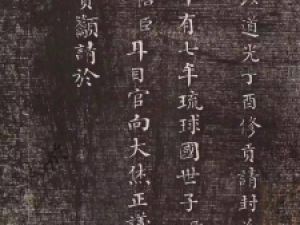 道光丁酉修貢請封
有七年琉球國世子
臣耳目官向大烋正議
貢籲請於